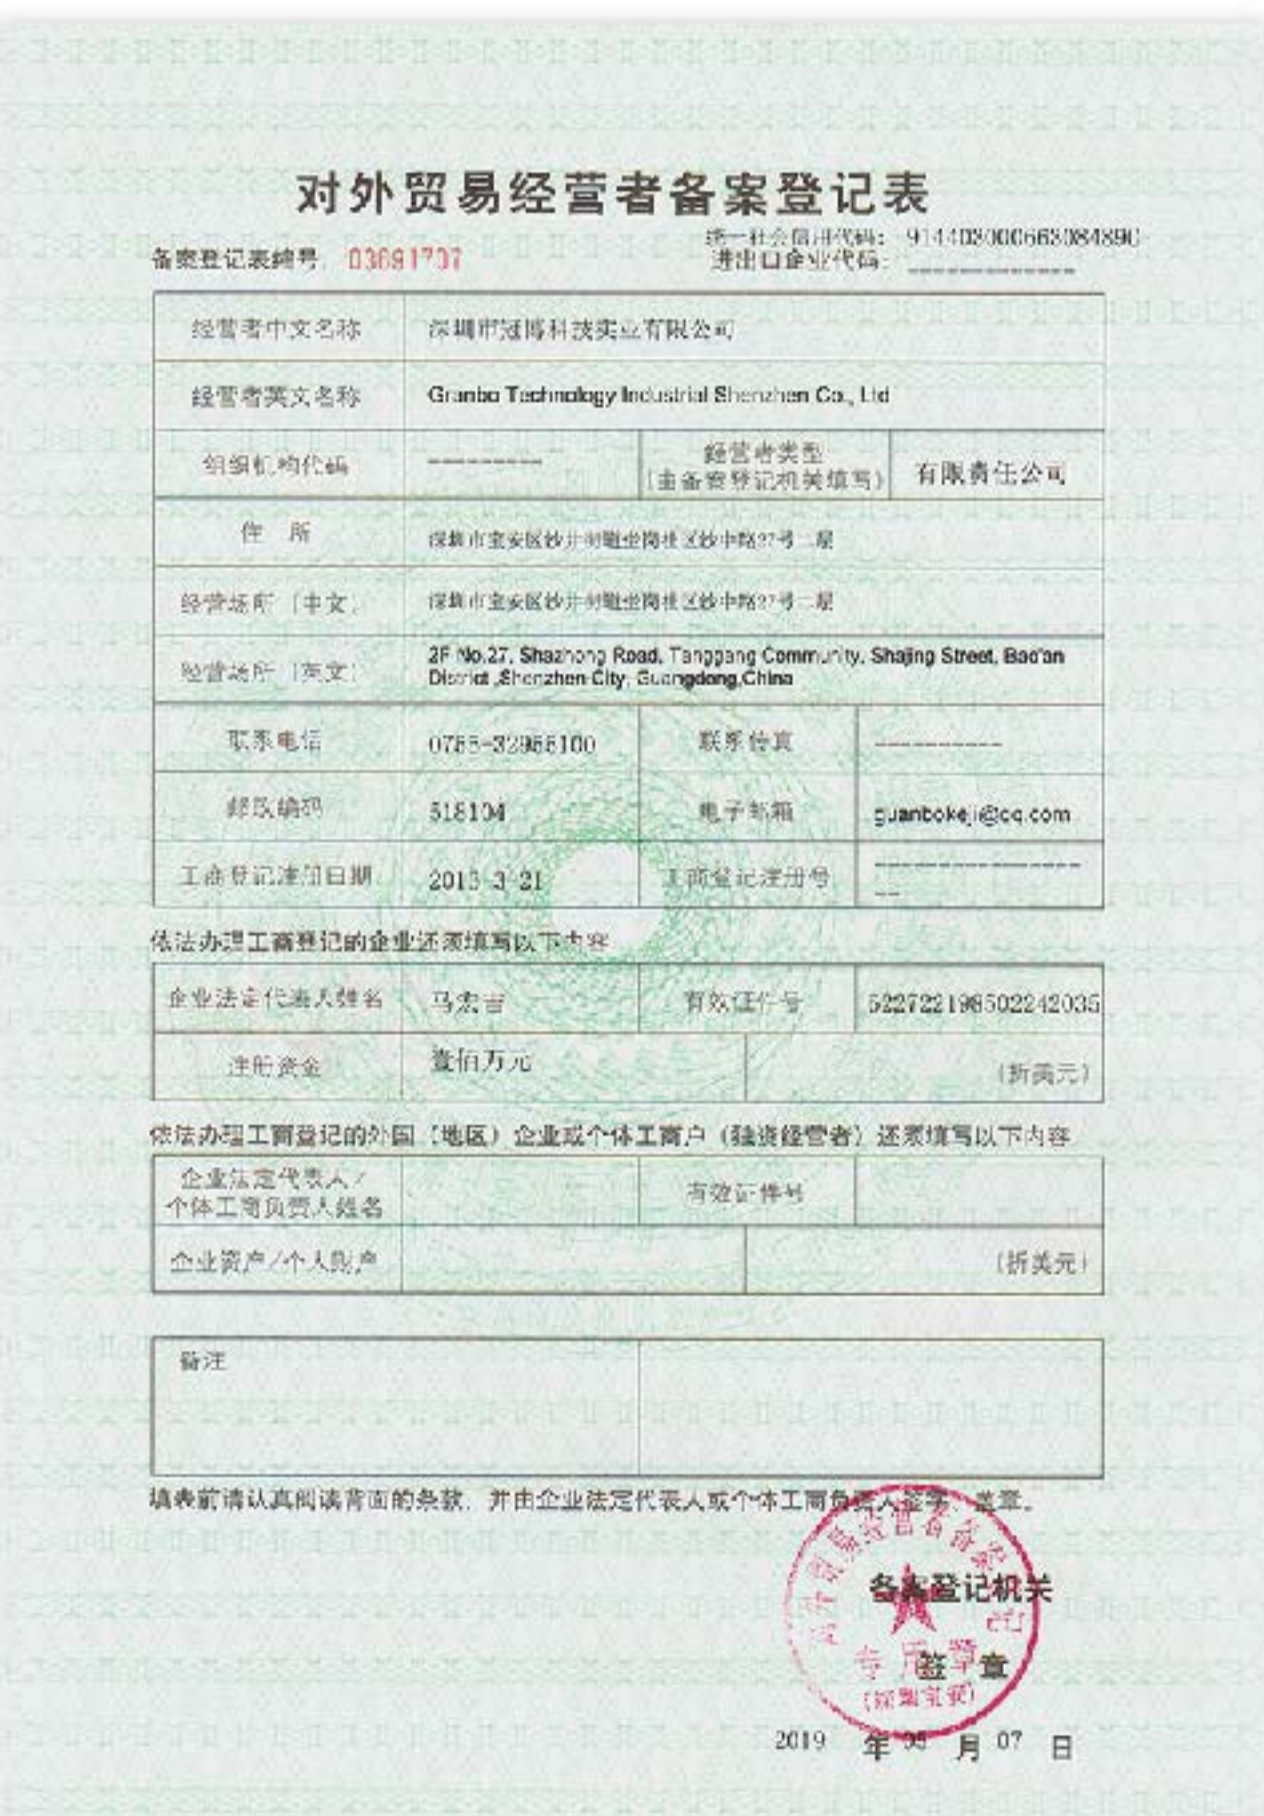 对外贸易经营者备案登记表
统一社会信用代码：
备案登记表编号：03691707
进出口企业代码：-------------
经营者中文名称 深圳市冠博科技实业有限公司
经营者英文名称 Granbo Technology Industrial Shenzhen Co., Ltd
组织机构代码 --------- 经营者类型 有限责任公司
(由备案登记机关填写)
住 所 深圳市宝安区沙井街道坣岗社区沙中路27号二层
经营场所（中文） 深圳市宝安区沙井街道坣岗社区沙中路27号二层
经营场所（英文） 2F No.27, Shazhong Road, Tanggang Community, Shajing Street, Bao'an
District ,Shenzhen City, Guangdong,China
联系电话 联系传真 ----------
邮政编码 518104 电子邮箱 guanbokeji@qq.com
工商登记注册日期 2013-3-21 工商登记注册号 ----------------
--
依法办理工商登记的企业还须填写以下内容
企业法定代表人姓名 马宏吉 有效证件号 522722198502242035
注册资金 壹佰万元 (折美元)
依法办理工商登记的外国（地区）企业或个体工商户（独资经营者）还须填写以下内容
企业法定代表人/
个体工商负责人姓名 有效证件号
企业资产/个人财产 (折美元)
备注
填表前请认真阅读背面的条款，并由企业法定代表人或个体工商负责人签字、盖章。
对外贸易经营者备案登记
备案登记机关
专用章
签 章
(深圳宝安)
2019 年 05 月 07 日